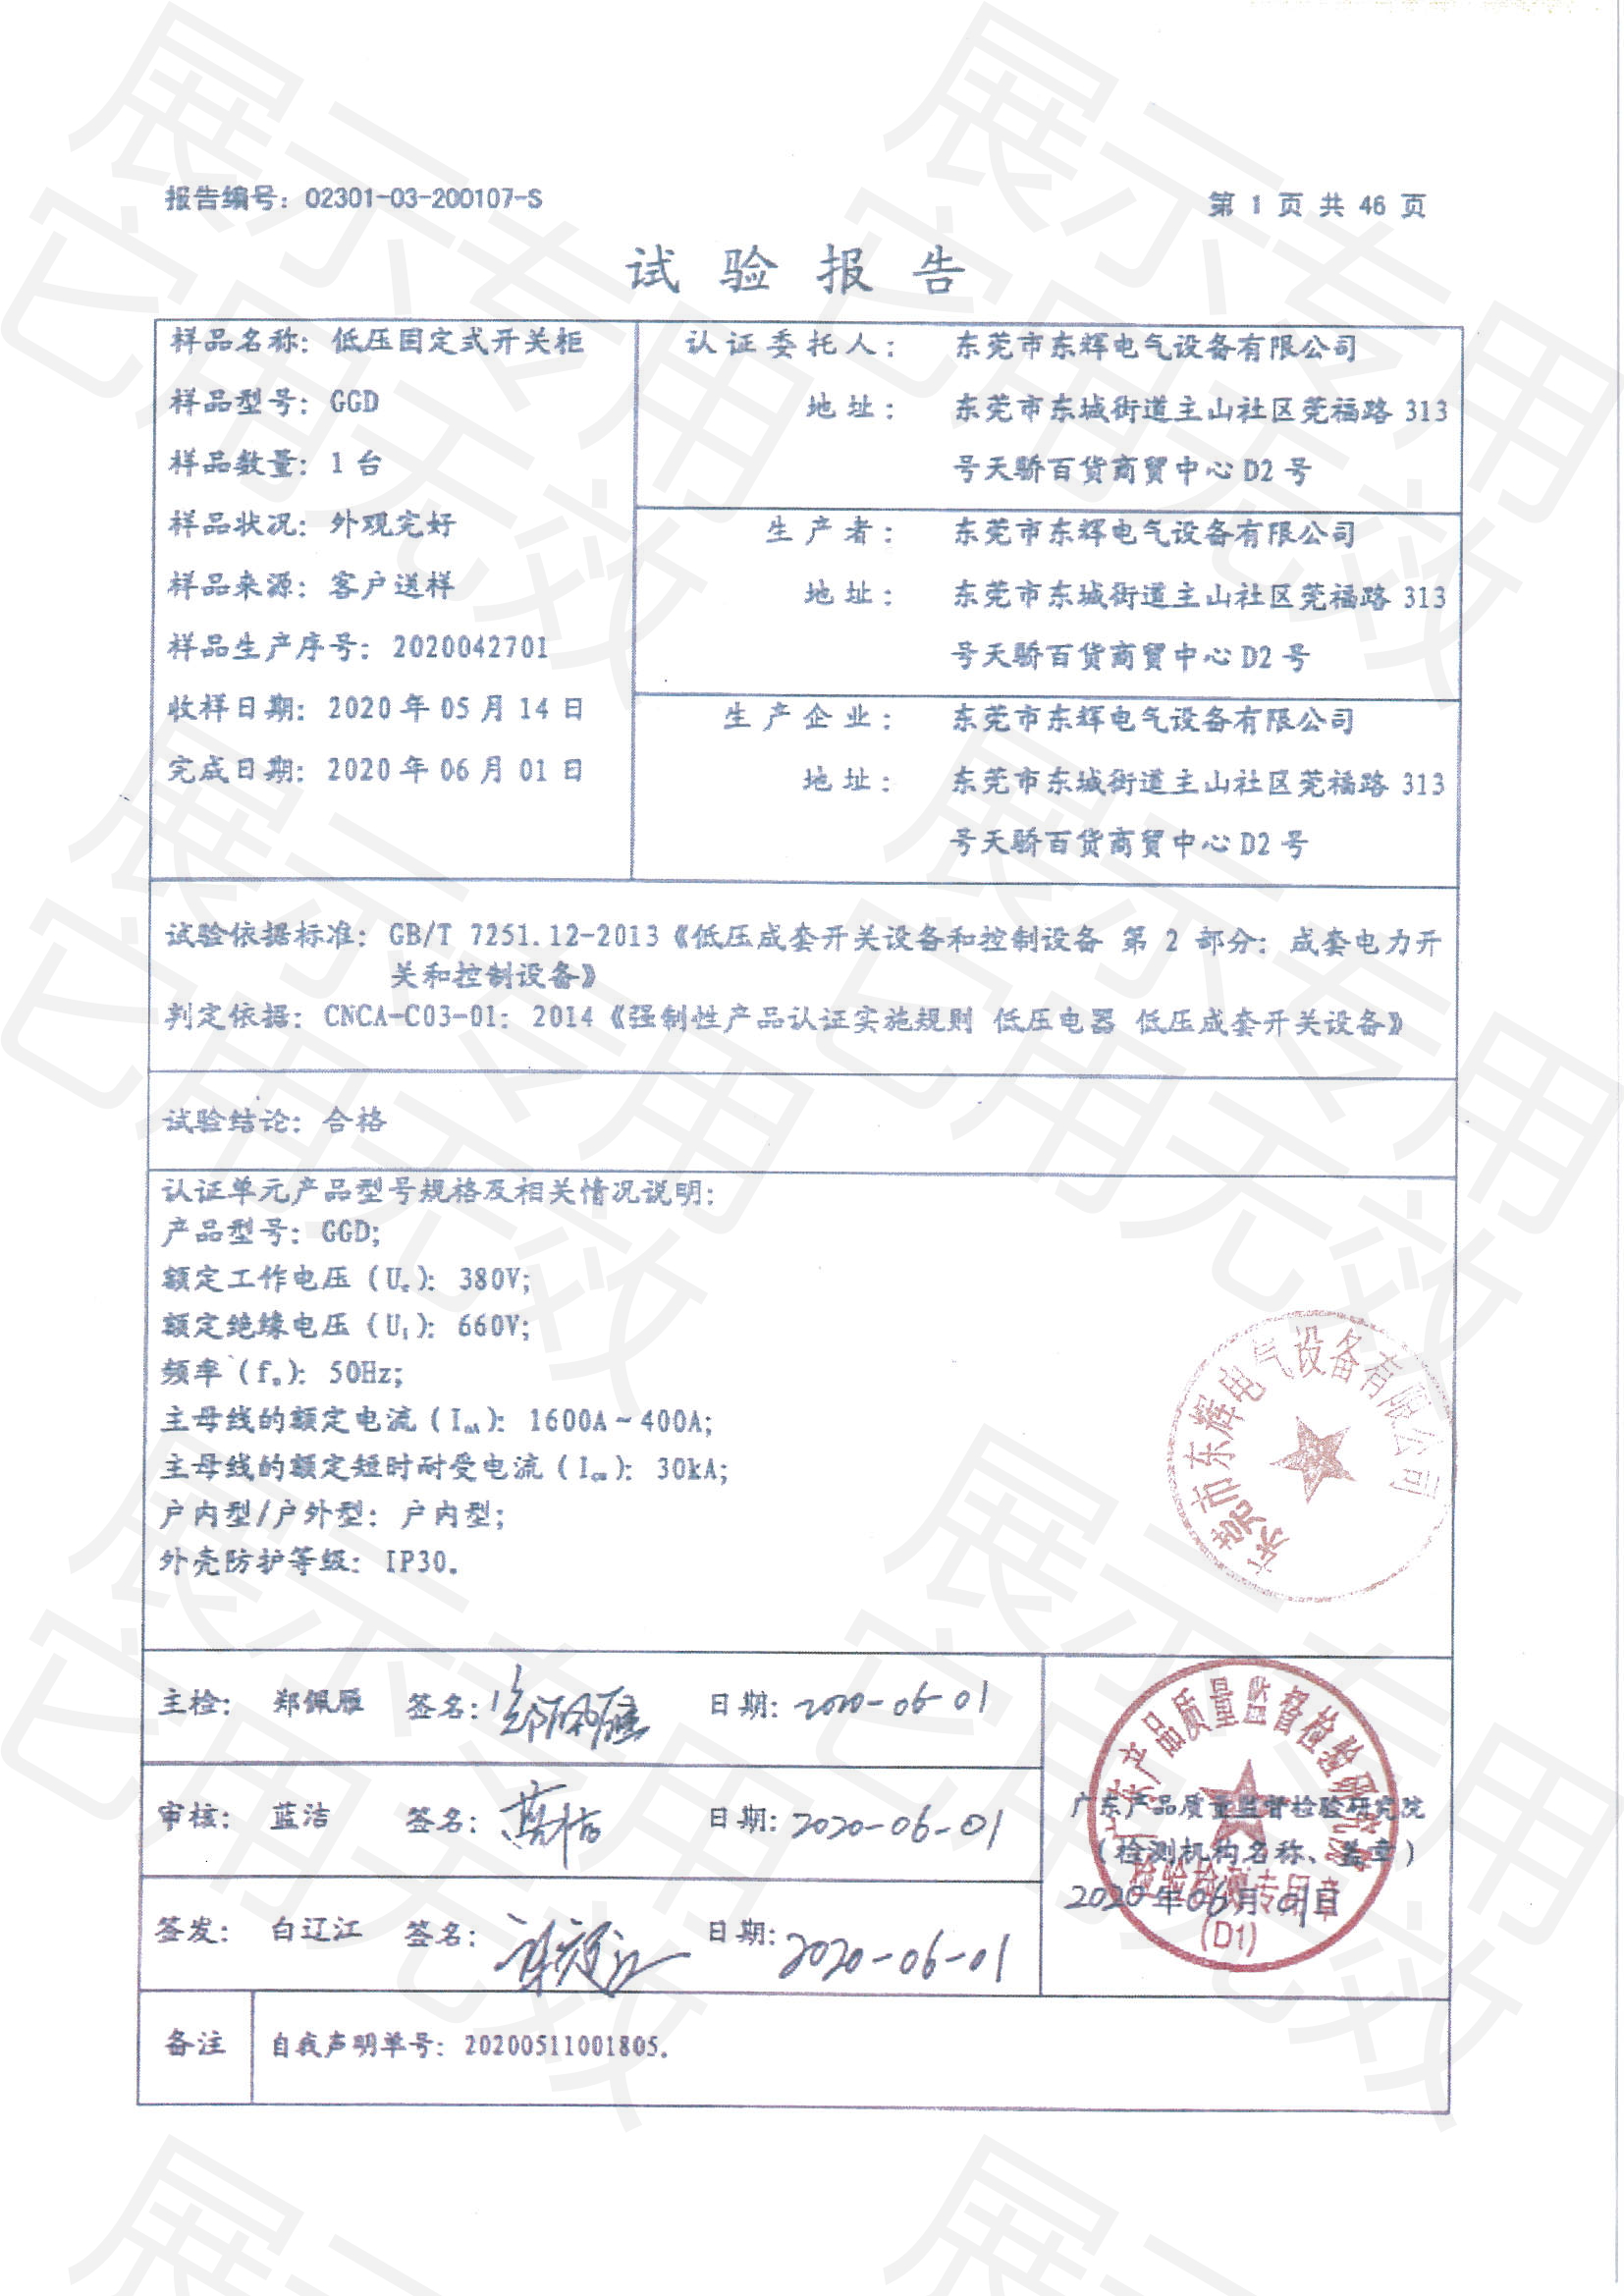 报告编号: 02301-03-200107-S
第 1 页 共 46 页
试 验 报 告
样品名称: 低压固定式开关柜
样品型号: GGD
样品数量: 1 台
样品状况: 外观完好
样品来源: 客户送样
样品生产序号: 2020042701
收样日期: 2020 年 05 月 14 日
完成日期: 2020 年 06 月 01 日
认证委托人: 东莞市东辉电气设备有限公司
地址: 东莞市东城街道主山社区莞福路 313
号天骄百货商贸中心 D2 号
生产者: 东莞市东辉电气设备有限公司
地址: 东莞市东城街道主山社区莞福路 313
号天骄百货商贸中心 D2 号
生产企业: 东莞市东辉电气设备有限公司
地址: 东莞市东城街道主山社区莞福路 313
号天骄百货商贸中心 D2 号
试验依据标准: GB/T 7251.12-2013《低压成套开关设备和控制设备 第 2 部分: 成套电力开
关和控制设备》
判定依据: CNCA-C03-01: 2014《强制性产品认证实施规则 低压电器 低压成套开关设备》
试验结论: 合格
认证单元产品型号规格及相关情况说明:
产品型号: GGD;
额定工作电压 (Ue): 380V;
额定绝缘电压 (Ui): 660V;
频率 (fn): 50Hz;
主母线的额定电流 (InA): 1600A~400A;
主母线的额定短时耐受电流 (Icw): 30kA;
户内型/户外型: 户内型;
外壳防护等级: IP30.
东莞市东辉电气设备有限公司
主检: 郑佩雁 签名: 郑佩雁 日期: 2020-06-01
审核: 蓝洁 签名: 蓝洁 日期: 2020-06-01
签发: 白辽江 签名: 日期: 2020-06-01
广东产品质量监督检验研究院
广东产品质量监督检验研究院
(检测机构名称、盖章)
检验检测专用章
2020 年 06 月 01 日
(D1)
备注 自我声明单号: 20200511001805.
展示专用
它用无效
展示专用
它用无效
展示专用
它用无效
展示专用
它用无效
展示专用
它用无效
展示专用
它用无效